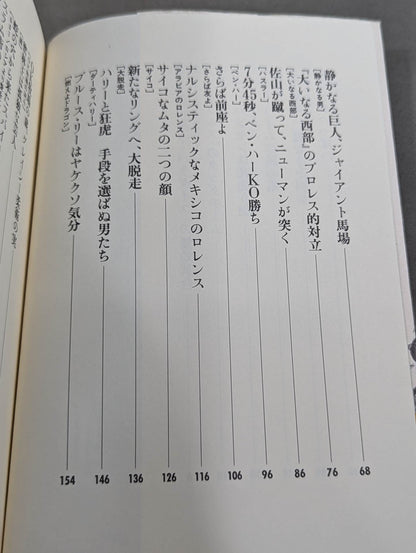 静かなる巨人、ジャイアント馬場
［静かなる男］
68
『大いなる西部』のプロレス的対立
［大いなる西部］
76
佐山が蹴って、ニューマンが突く
［ハスラー］
86
7分45秒、ベン・ハーKO勝ち
［ベン・ハー］
96
さらば前座よ
［さらば友よ］
106
ナルシスティックなメキシコのロレンス
［アラビアのロレンス］
116
サイコなムタの二つの顔
［サイコ］
126
新たなリングへ、大脱走
［大脱走］
136
ハリーと狂虎 手段を選ばぬ男たち
［ダーティハリー］
146
ブルース・リーはヤケクソ気分
［燃えよドラゴン］
154